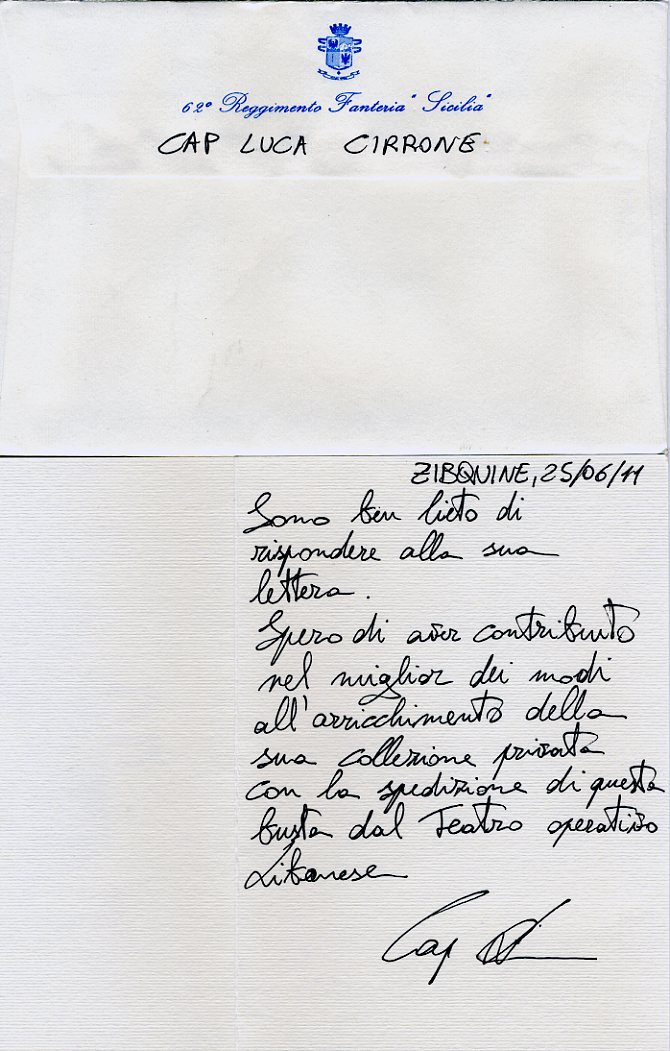 62° Reggimento Fanteria "Sicilia"
CAP LUCA CIRRONE
ZIBQUINE, 25/06/11
Sono ben lieto di
rispondere alla sua
lettera.
Spero di aver contribuito
nel miglior dei modi
all'arricchimento della
sua collezione privata
con la spedizione di questa
busta dal Teatro operativo
Libanese
Cap